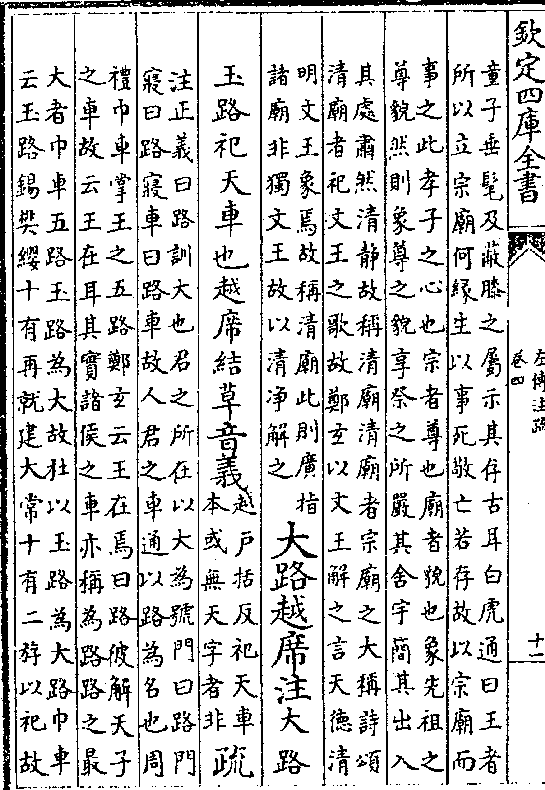 欽定四庫全書
左傳注疏
卷四
十二
童子垂髦及蔽膝之屬示其存古耳白虎通曰王者
所以立宗廟何緣生以事死敬亡若存故以宗廟而
事之此孝子之心也宗者尊也廟者貌也象先祖之
尊貌然則象尊之貌享祭之所嚴其舍宇簡其出入
其處肅然清静故稱清廟清廟者宗廟之大稱詩頌
清廟者祀文王之歌故鄭玄以文王解之言天德清
明文王象焉故稱清廟此則廣指
諸廟非獨文王故以清净解之
大路越席注大路
玉路祀天車也越席結草音義
越戸括反祀天車
本或無天字者非
疏
注正義曰路訓大也君之所在以大為號門曰路門
寢曰路寢車曰路車故人君之車通以路為名也周
禮巾車掌王之五路鄭玄云王在焉曰路彼解天子
之車故云王在耳其實諸侯之車亦稱為路路之最
大者巾車五路玉路為大故杜以玉路為大路巾車
云玉路錫樊纓十有再就建大常十有二斿以祀故